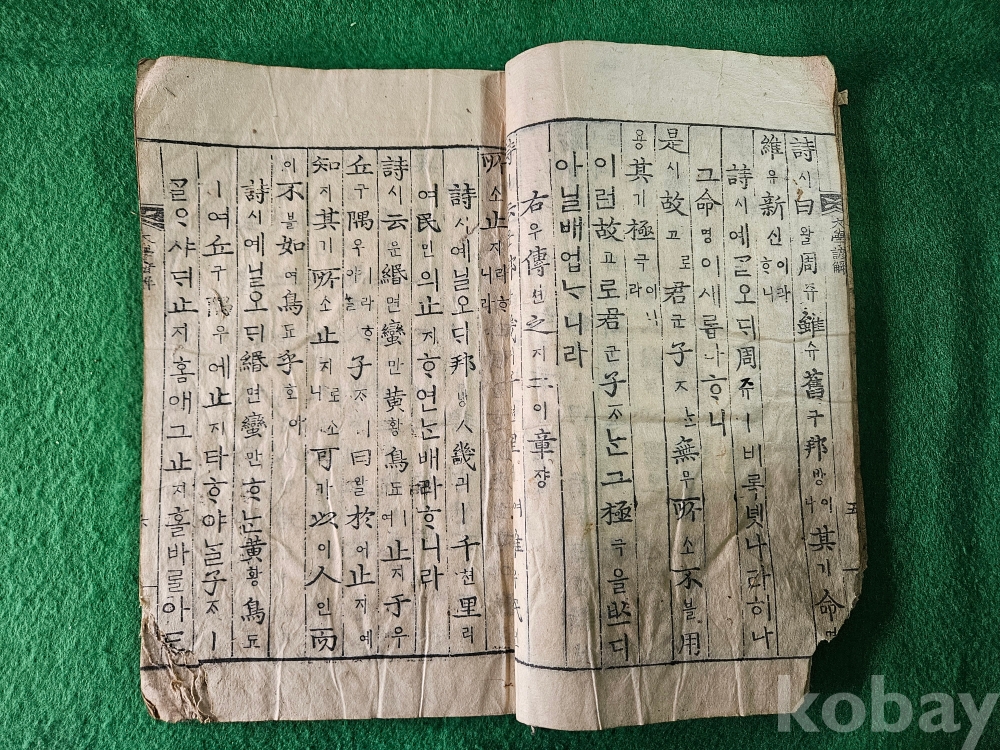 詩시曰왈周쥬雖슈舊구邦방이나其기命
維유新신이라ᄒᆞ니
詩시예ᄀᆞᆯ오ᄃᆡ周쥬ㅣ비록녯나라히나
그命명이새롭다ᄒᆞ니
是시故고로君군子ᄌᆞᄂᆞᆫ無무所소不블用
용其기極극이니라
이런故고로君군子ᄌᆞᄂᆞᆫ그極극을ᄡᅳ디
아닐배업ᄂᆞ니라
右우傳뎐之지二이章쟝
所소止지라ᄒᆞ니라
詩시예닐오ᄃᆡ邦방ㅅ畿긔ㅣ千쳔里리
여民민의止지ᄒᆞ연ᄂᆞᆫ배라ᄒᆞ니라
詩시云운緡면蠻만黃황鳥됴ㅣ여止지于우
丘구隅우ㅣ라ᄒᆞ야ᄂᆞᆯ子ᄌᆞㅣ曰왈於어止지예
知지其기所소止지로소니可가以이人인而
이不블如여鳥됴乎호아
詩시예닐오ᄃᆡ緡면蠻만ᄒᆞᆫ黃황鳥됴
ㅣ여丘구隅우에止지타ᄒᆞ야ᄂᆞᆯ子ᄌᆞㅣ
ᄀᆞᆯᄋᆞ샤ᄃᆡ止지홈애그止지홀바ᄅᆞᆯ아
大學諺解
五
kobay